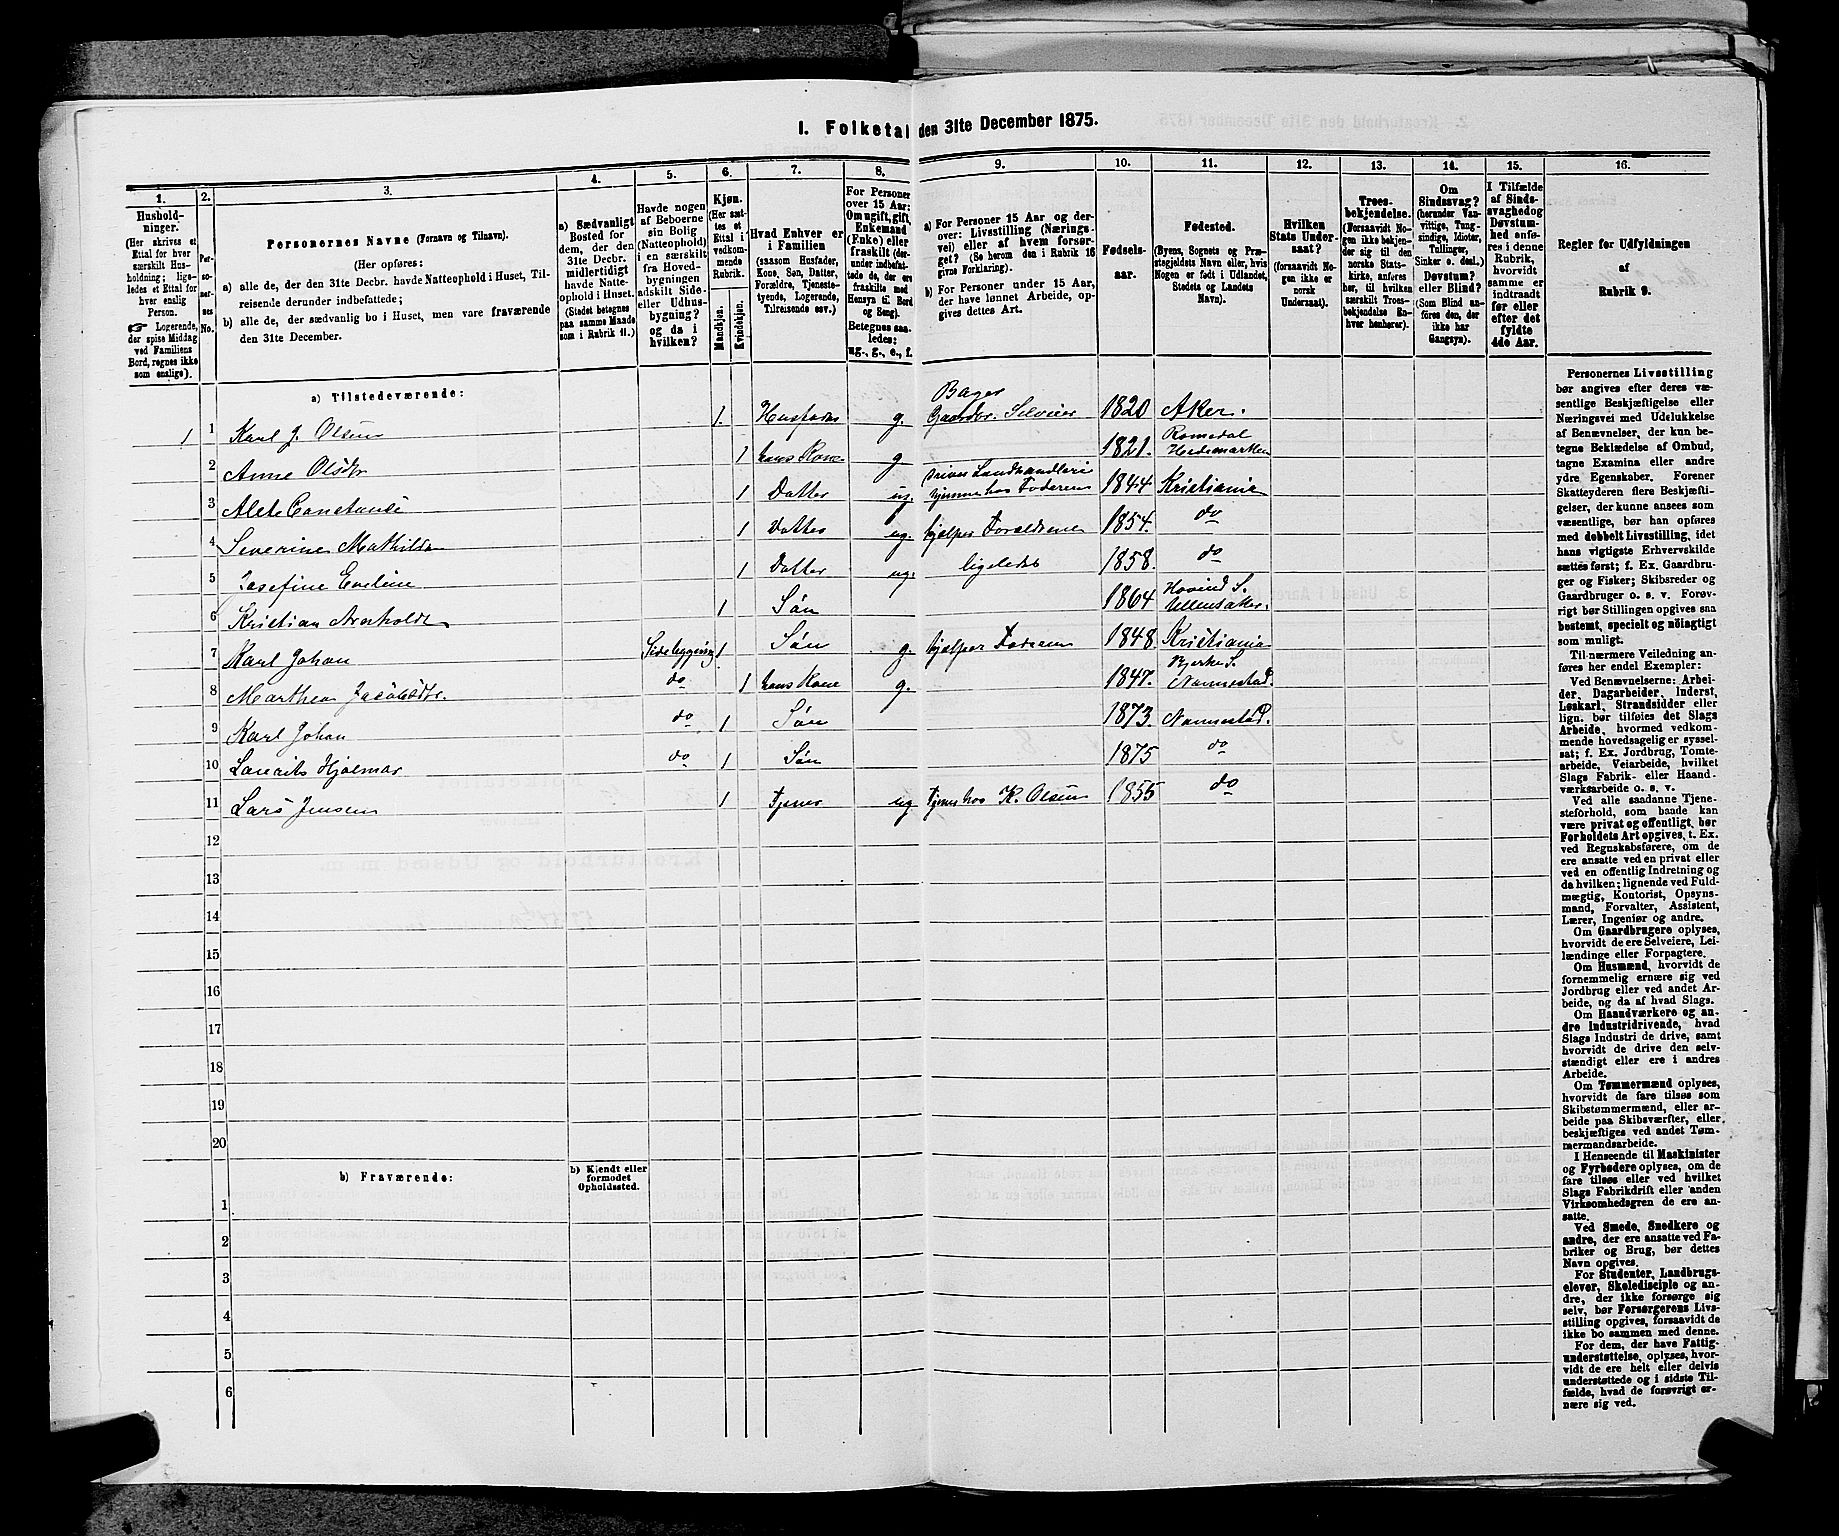 1. Folketal den 31te December 1875.
1.
2.
3.
4.
5.
6.
7.
8.
9.
10.
11.
12.
13.
14.
15.
16.
Hushold-
ninger.
(Her skrives et
Ettal for hver
særskilt Hus-
holdning; lige-
ledes et Ettal for
hver enslig
Person.
☞ Logerende,
der spise Middag
ved Familiens
Bord, regnes ikke
som enslige).
Per-
so-
ner-
ses
No.
Personernes Navne (Fornavn og Tilnavn).
(Her opføres:
a) alle de, der den 31te Decbr. havde Natteophold i Huset, Til-
reisende derunder indbefattede;
b) alle de, der sædvanlig bo i Huset, men vare fraværende
den 31te December.
a) Sædvanligt
Bosted for
dem, der den
31te Decbr.
midlertidigt
havde Natte-
ophold i Huset.
(Stedet betegnes
paa samme Maade
som i Rubrik 11.)
Havde nogen
af Beboerne
sin Bolig
(Natteophold)
i en særskilt
fra Hoved-
bygningen
adskilt Side-
eller Udhus-
bygning?
og da i
hvilken?
Kjøn.
(Her sæt-
tes et
Ettal i
vedkom-
mende
Rubrik.
Mandkjøn.
Kvindekjøn.
Hvad Enhver er
i Familien
(saasom Husfader,
Kone, Søn, Datter,
Forældre, Tjeneste-
tyende, Logerende,
Tilreisende osv.)
For Personer
over 15 Aar:
Om ugift, gift,
Enkemand
(Enke) eller
fraskilt (der-
under indbefat-
tede de, der ere
fraskilte med
Hensyn til Bord
og Seng).
Betegnes saa-
ledes:
ug., g., e., f.
a) For Personer 15 Aar og der-
over: Livsstilling (Nærings-
vei) eller af hvem forsør-
get? (Se herom den i Rubrik 16
givne Forklaring).
b) For Personer under 15 Aar,
der have lønnet Arbeide, op-
gives dettes Art.
Fødsels-
aar.
Fødested.
(Byens, Sognets og Præ-
stegjeldets Navn eller, hvis
Nogen er født i Udlandet,
Stedets og Landets
Navn).
Hvilken
Stats Under-
saat?
(forsaavidt No-
gen ikke er
norsk
Undersaat).
Troes-
bekjendelse.
(Forsaavidt No-
gen ikke bekjen-
der sig til den
norske Stats-
kirke, anføres
her, til hvilken
særskilt Troes-
bekjendelse En-
hver henhører).
Om
Sindssvag?
(herunder Van-
vittige, Tung-
sindige, Idioter,
Tullinger,
Sinker o. desl.)
Døvstum?
eller Blind?
(Som Blind an-
føres den, der
ikke har
Gangsyn).
I Tilfælde
af Sinds-
svaghed og
Døvstum-
hed anfø-
res i denne
Rubrik,
hvorvidt
samme er
indtraadt
før eller
efter det
fyldte
4de Aar.
Regler for Udfyldningen
af
Rubrik 9.
a) Tilstedeværende:
1 1 Karl J. Olsen 1. Husfader g. Bager
Gaardbr. Selveier 1820 Aker.
2 Anne Olsdtr 1 hans Kone g 1821. Romedal
Hedemarken
3 Alete Constansi 1 Datter ug. driver Landhandleri
hjemme hos Foderen 1844 Kristiania
4 Severine Mathilde 1 Datter ug. hjælper Foreldrene 1854. do
5 Josefine Eveline 1 Datter ug. ligeledes 1858. do
6 Kristian Arnholdt 1 Søn 1864 Hovind S.
Ullensaker.
7 Karl Johan Sidebygning 1 Søn g. hjælper Foderen 1848. Kristiania
8 Marthea Jacobsdtr. do 1 hans Kone g. 1847. Bjerke S.
Nannestad.
9 Karl Johan do 1 Søn 1873. Nannestad.
10 Lauritz Hjalmar do 1 Søn 1875 do
11 Lars Jensen 1 Tjener ug Tjener hos K. Olsen 1855 do
12
13
14
15
16
17
18
19
20
b) Fraværende:
b) Kjendt eller
formodet
Opholdssted.
1
2
3
4
5
6
Personernes Livsstilling
bør angives efter deres væ-
sentlige Beskjæftigelse eller
Næringsvei med Udelukkelse
af Benævnelser, der kun be-
tegne Beklædelse af Ombud,
tagne Examina eller andre
ydre Egenskaber. Forener
Skatteyderen flere Beskjæfti-
gelser, der kunne ansees som
væsentlige, bør han opføres
med dobbelt Livsstilling, idet
hans vigtigste Erhvervskilde
sættes først; f. Ex. Gaardbru-
ger og Fisker; Skibsreder og
Gaardbruger o. s. v. Forøv-
rigt bør Stillingen opgives saa
bestemt, specielt og nøiagtigt
som muligt.
Til nærmere Veiledning an-
føres her endel Exempler:
Ved Benævnelserne: Arbei-
der, Dagarbeider, Inderst,
Løskarl, Strandsidder eller
lign. bør tilføies det Slags
Arbeide, hvormed vedkom-
mende hovedsagelig er syssel-
sat; f. Ex. Jordbrug, Tomte-
arbeide, Veiarbeide, hvilket
Slags Fabrik- eller Haand-
værksarbeide o. s. v.
Ved alle saadanne Tjene-
steforhold, som baade kan
være privat og offentligt, bør
Forholdets Art opgives, t. Ex.
ved Regnskabsførere, om de
ere ansatte ved en privat eller
ved en offentlig Indretning og
da hvilken; lignende ved Fuld-
mægtig, Kontorist, Opsyns-
mand, Forvalter, Assistent,
Lærer, Ingeniør og andre.
Om Gaardbrugere oplyses,
hvorvidt de ere Selveiere, Lei-
lændinge eller Forpagtere.
Om Husmænd, hvorvidt de
fornemmelig ernære sig ved
Jordbrug eller ved andet Ar-
beide, og da af hvad Slags.
Om Haandværkere og an-
dre Industridrivende, hvad
Slags Industri de drive, samt
hvorvidt de drive den selv-
stændigt eller ere i andres
Arbeide.
Om Tømmermænd oplyses,
hvorvidt de fare tilsøs som
Skibstømmermænd, eller ar-
beide paa Skibsværfter, eller
beskjæftiges ved andet Tøm-
mermandsarbeide.
I Henseende til Maskinister
og Fyrbødere oplyses, om de
fare tilsøs eller ved hvilket
Slags Fabrikdrift eller anden
Virksomhedsgren de ere an-
satte.
Ved Smede, Snedkere og
andre, der ere ansatte ved Fa-
briker og Brug, bør dettes
Navn opgives.
For Studenter, Landbrugs-
elever, Skoledisciple og an-
dre, der ikke forsørge sig
selv, bør Forsørgerens Livs-
stilling opgives, forsaavidt de
ikke bo sammen med denne.
For dem, der have Fattig-
understøttelse, oplyses, hvor-
vidt de ere helt eller delvis
understøttede og i sidste Til-
fælde, hvad de forøvrigt er-
nære sig ved.